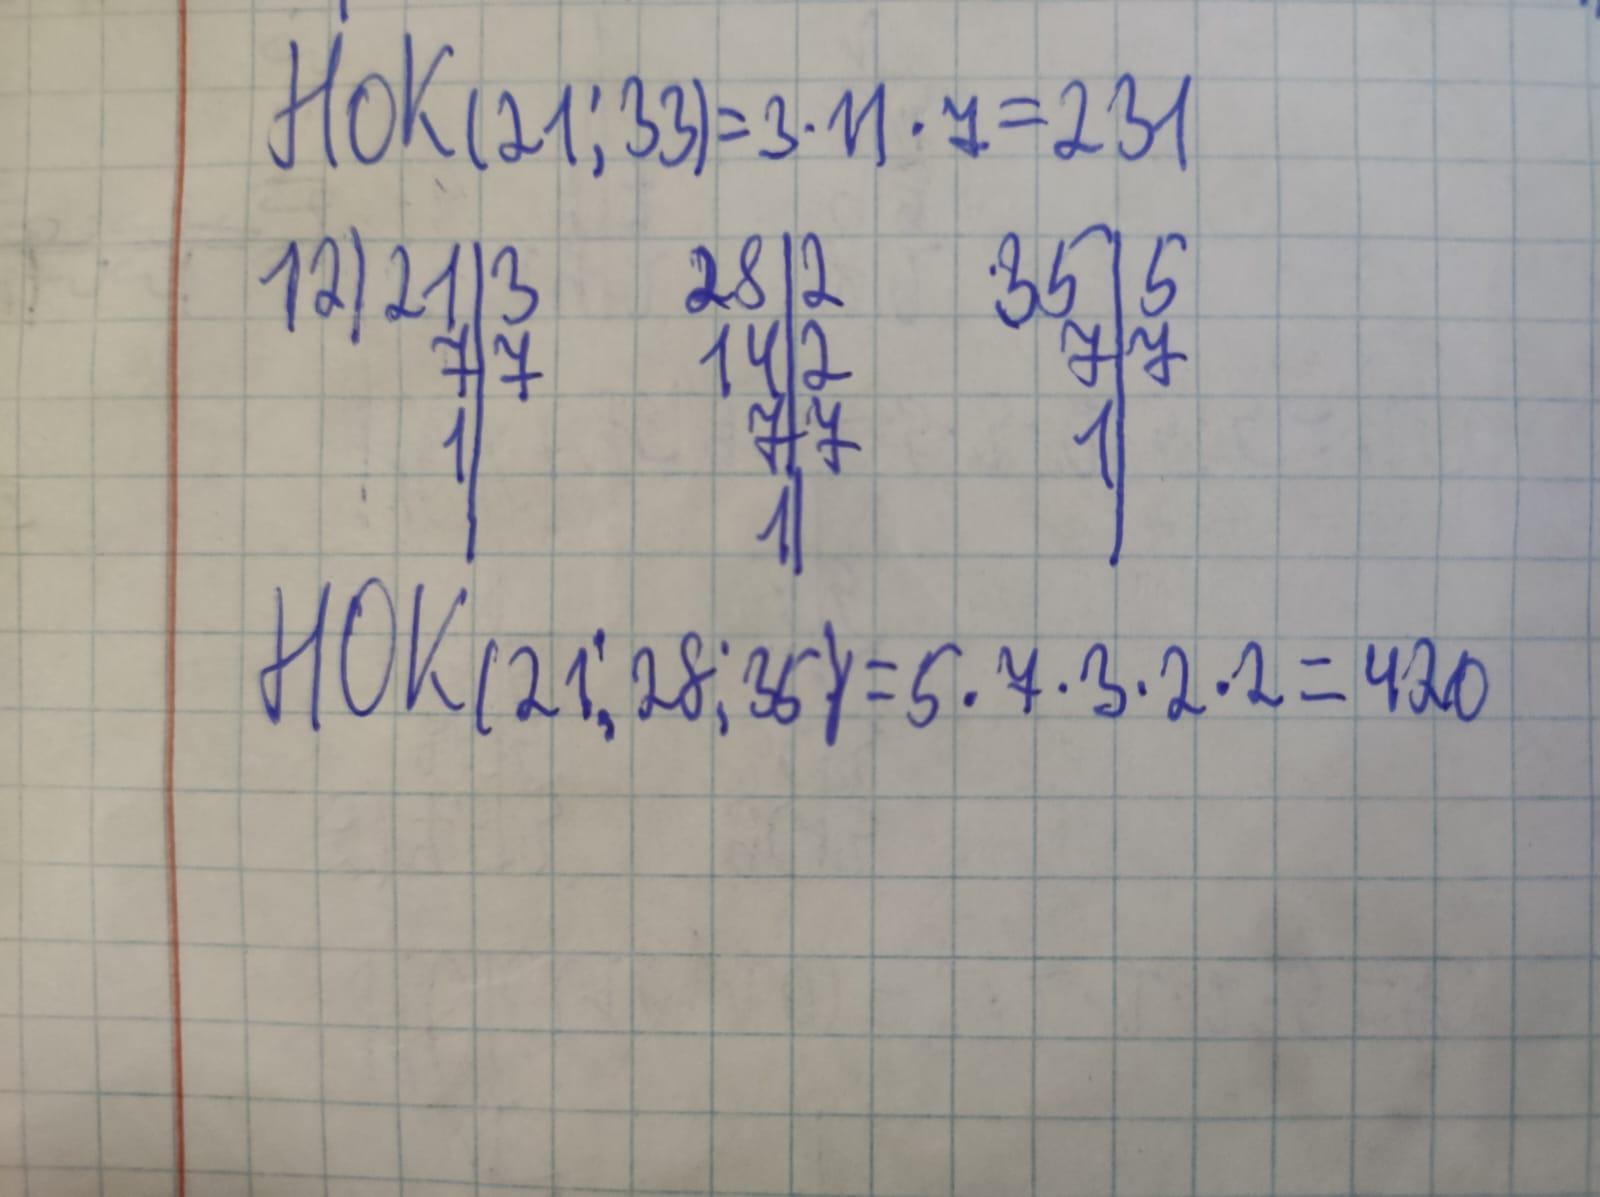 НОК(21; 33)=3·11·7=231
12) 21|3 28|2 35|5
7|7 14|2 7|7
1| 7|7 1|
1|
НОК(21; 28; 35)=5·7·3·2·2=420